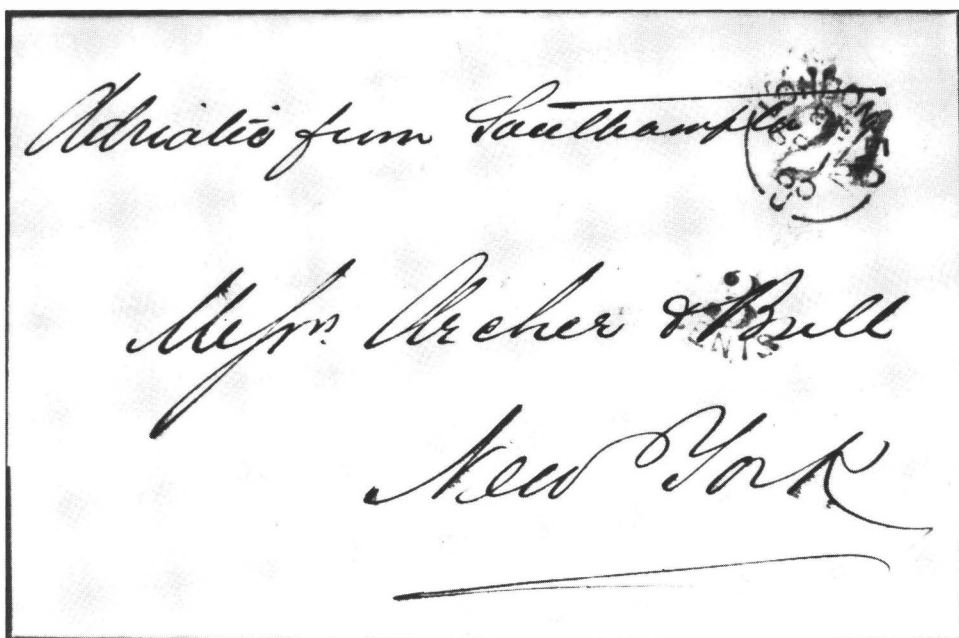 Adriatic from Southampton
LONDON
PAID
Messrs. Archer & Bull
CENTS
New York